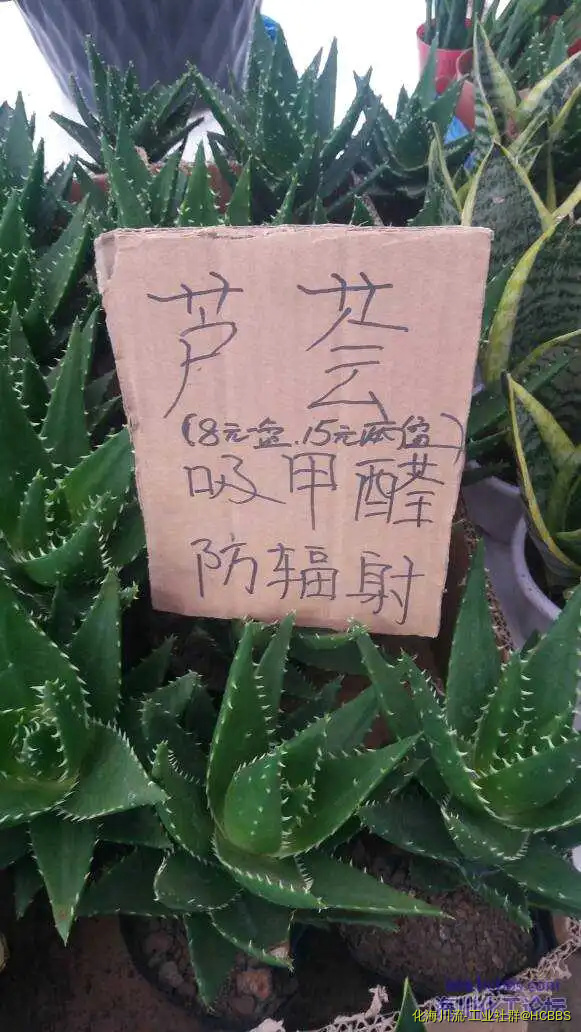 芦荟
(8元一盆.15元两盆)
吸甲醛
防辐射
化海川流-工业社群@HCBBS